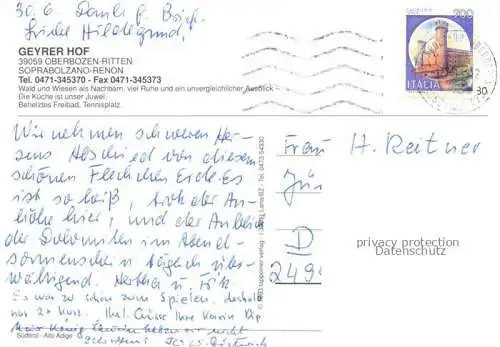 30.6. Dank f. Brief.
Liebe Hildegund,
GEYRER HOF
39059 OBERBOZEN-RITTEN
SOPRABOLZANO-RENON
Tel. 0471-345370 - Fax 0471-345373
Wald und Wiesen als Nachbarn, viel Ruhe und ein unvergleichlicher Ausblick -
Die Küche ist unser Juwel.
Beheiztes Freibad, Tennisplatz.
700
ITALIA
80
Wir nehmen schweren Her-
zens Abschied von diesem
schönen Fleckchen Erde. Es
ist so heiß, trotz der An-
höhe hier, und der Anblick
der Dolomiten im Abend-
sonnenschein täglich über-
wältigend. Herbert u.
Es war zu schön zum Spielen, deshalb
nur 2x kurz. Ihre Verein
nicht
Südtirol - Alto Adige
Tappeiner Verlag
Lana/BZ - Tel. 0473-54330
Frau H. Reitner
D
249
privacy protection
Datenschutz